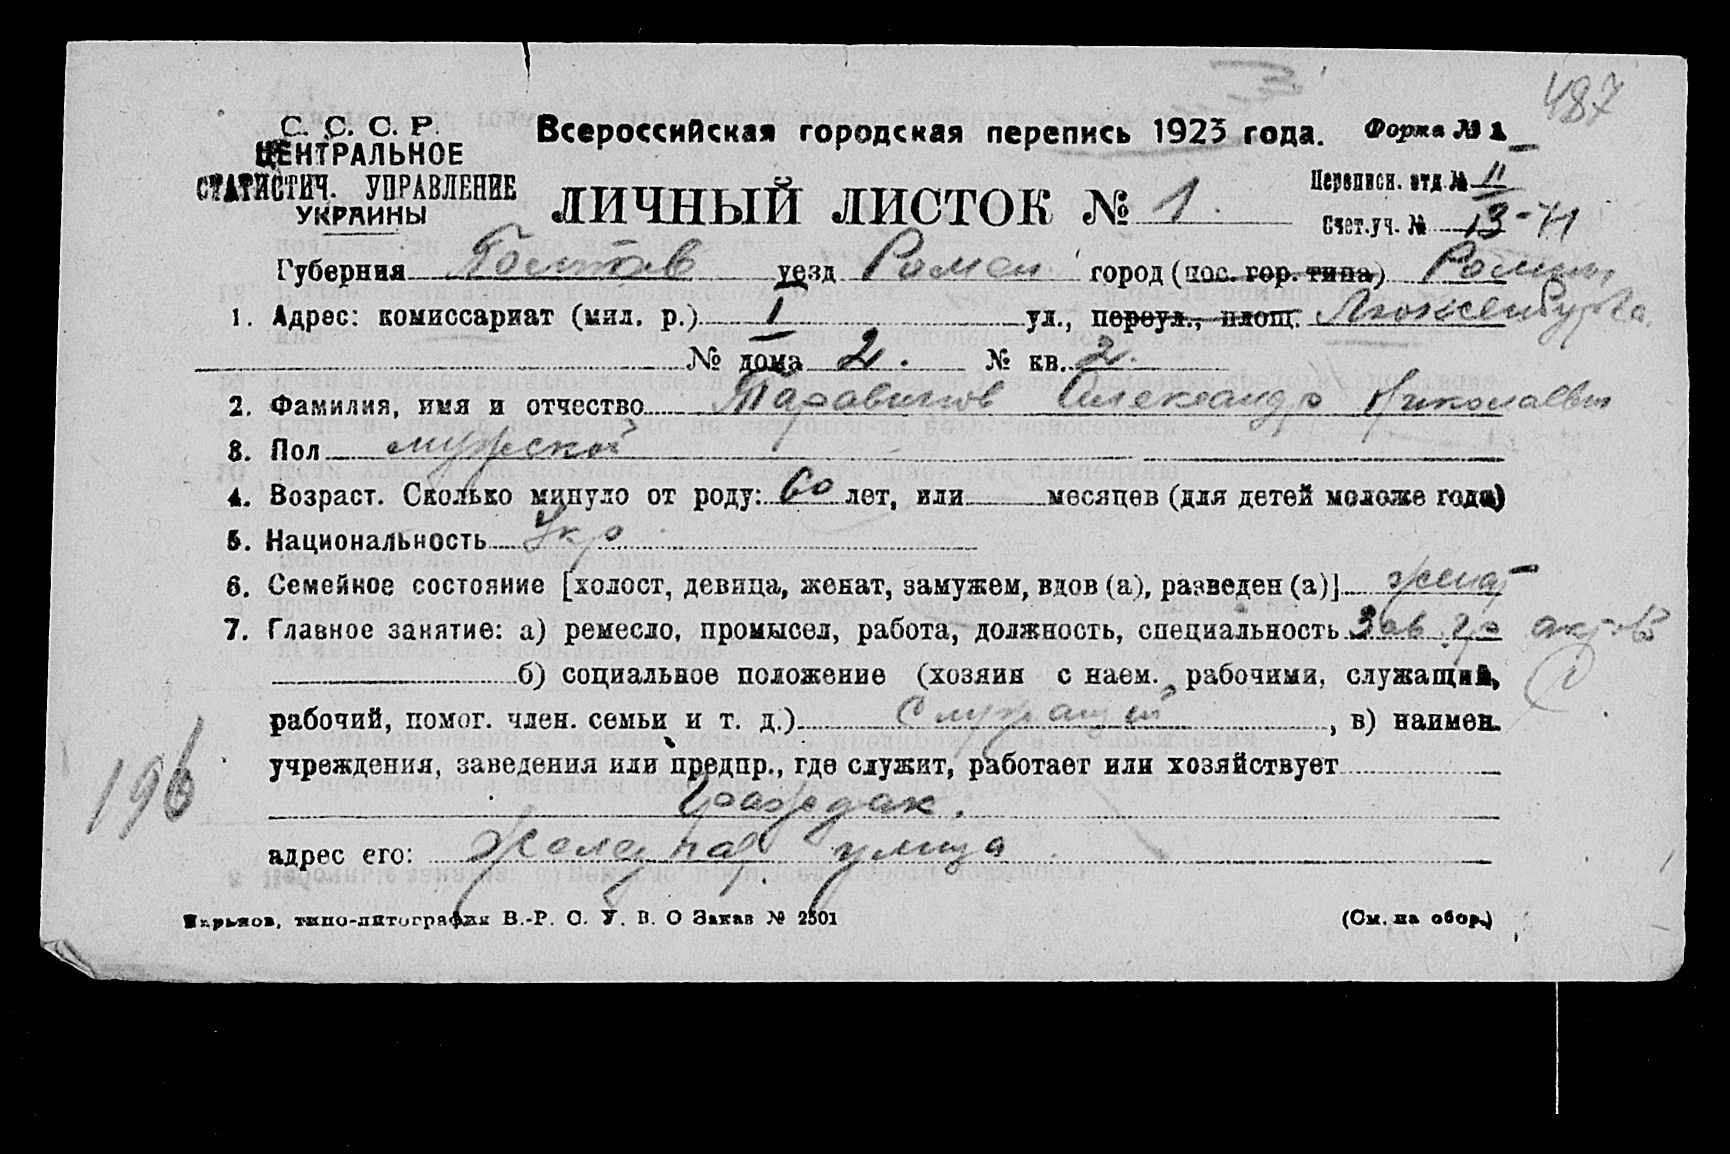 487
С. С. С. Р.
ЦЕНТРАЛЬНОЕ
СТАТИСТИЧ. УПРАВЛЕНИЕ
УКРАИНЫ
Всероссийская городская перепись 1923 года. Форма № 1
ЛИЧНЫЙ ЛИСТОК № 1.
Переписн. отд. № II
Счет. уч. № 13-41
Губерния Полтав уезд Ромен город (пос. гор. типа) Ромны
1. Адрес: комиссариат (мил. р.) I ул., переул., площ. Люксембурга
№ дома 2. № кв. 2.
2. Фамилия, имя и отчество Александр Николаевич
3. Пол мужской
4. Возраст. Сколько минуло от роду: 60 лет, или месяцев (для детей моложе года)
5. Национальность Укр
6. Семейное состояние [холост, девица, женат, замужем, вдов (а), разведен (а)] женат
7. Главное занятие: а) ремесло, промысел, работа, должность, специальность Зав.
б) социальное положение (хозяин с наем. рабочими, служащий,
рабочий, помог. член. семьи и т. д.) Служащий, в) наимен.
учреждения, заведения или предпр., где служит, работает или хозяйствует
196
адрес его: улица
Харьков, типо-литография В.-Р. С. У. В. О Заказ № 2501 (См. на обор.)